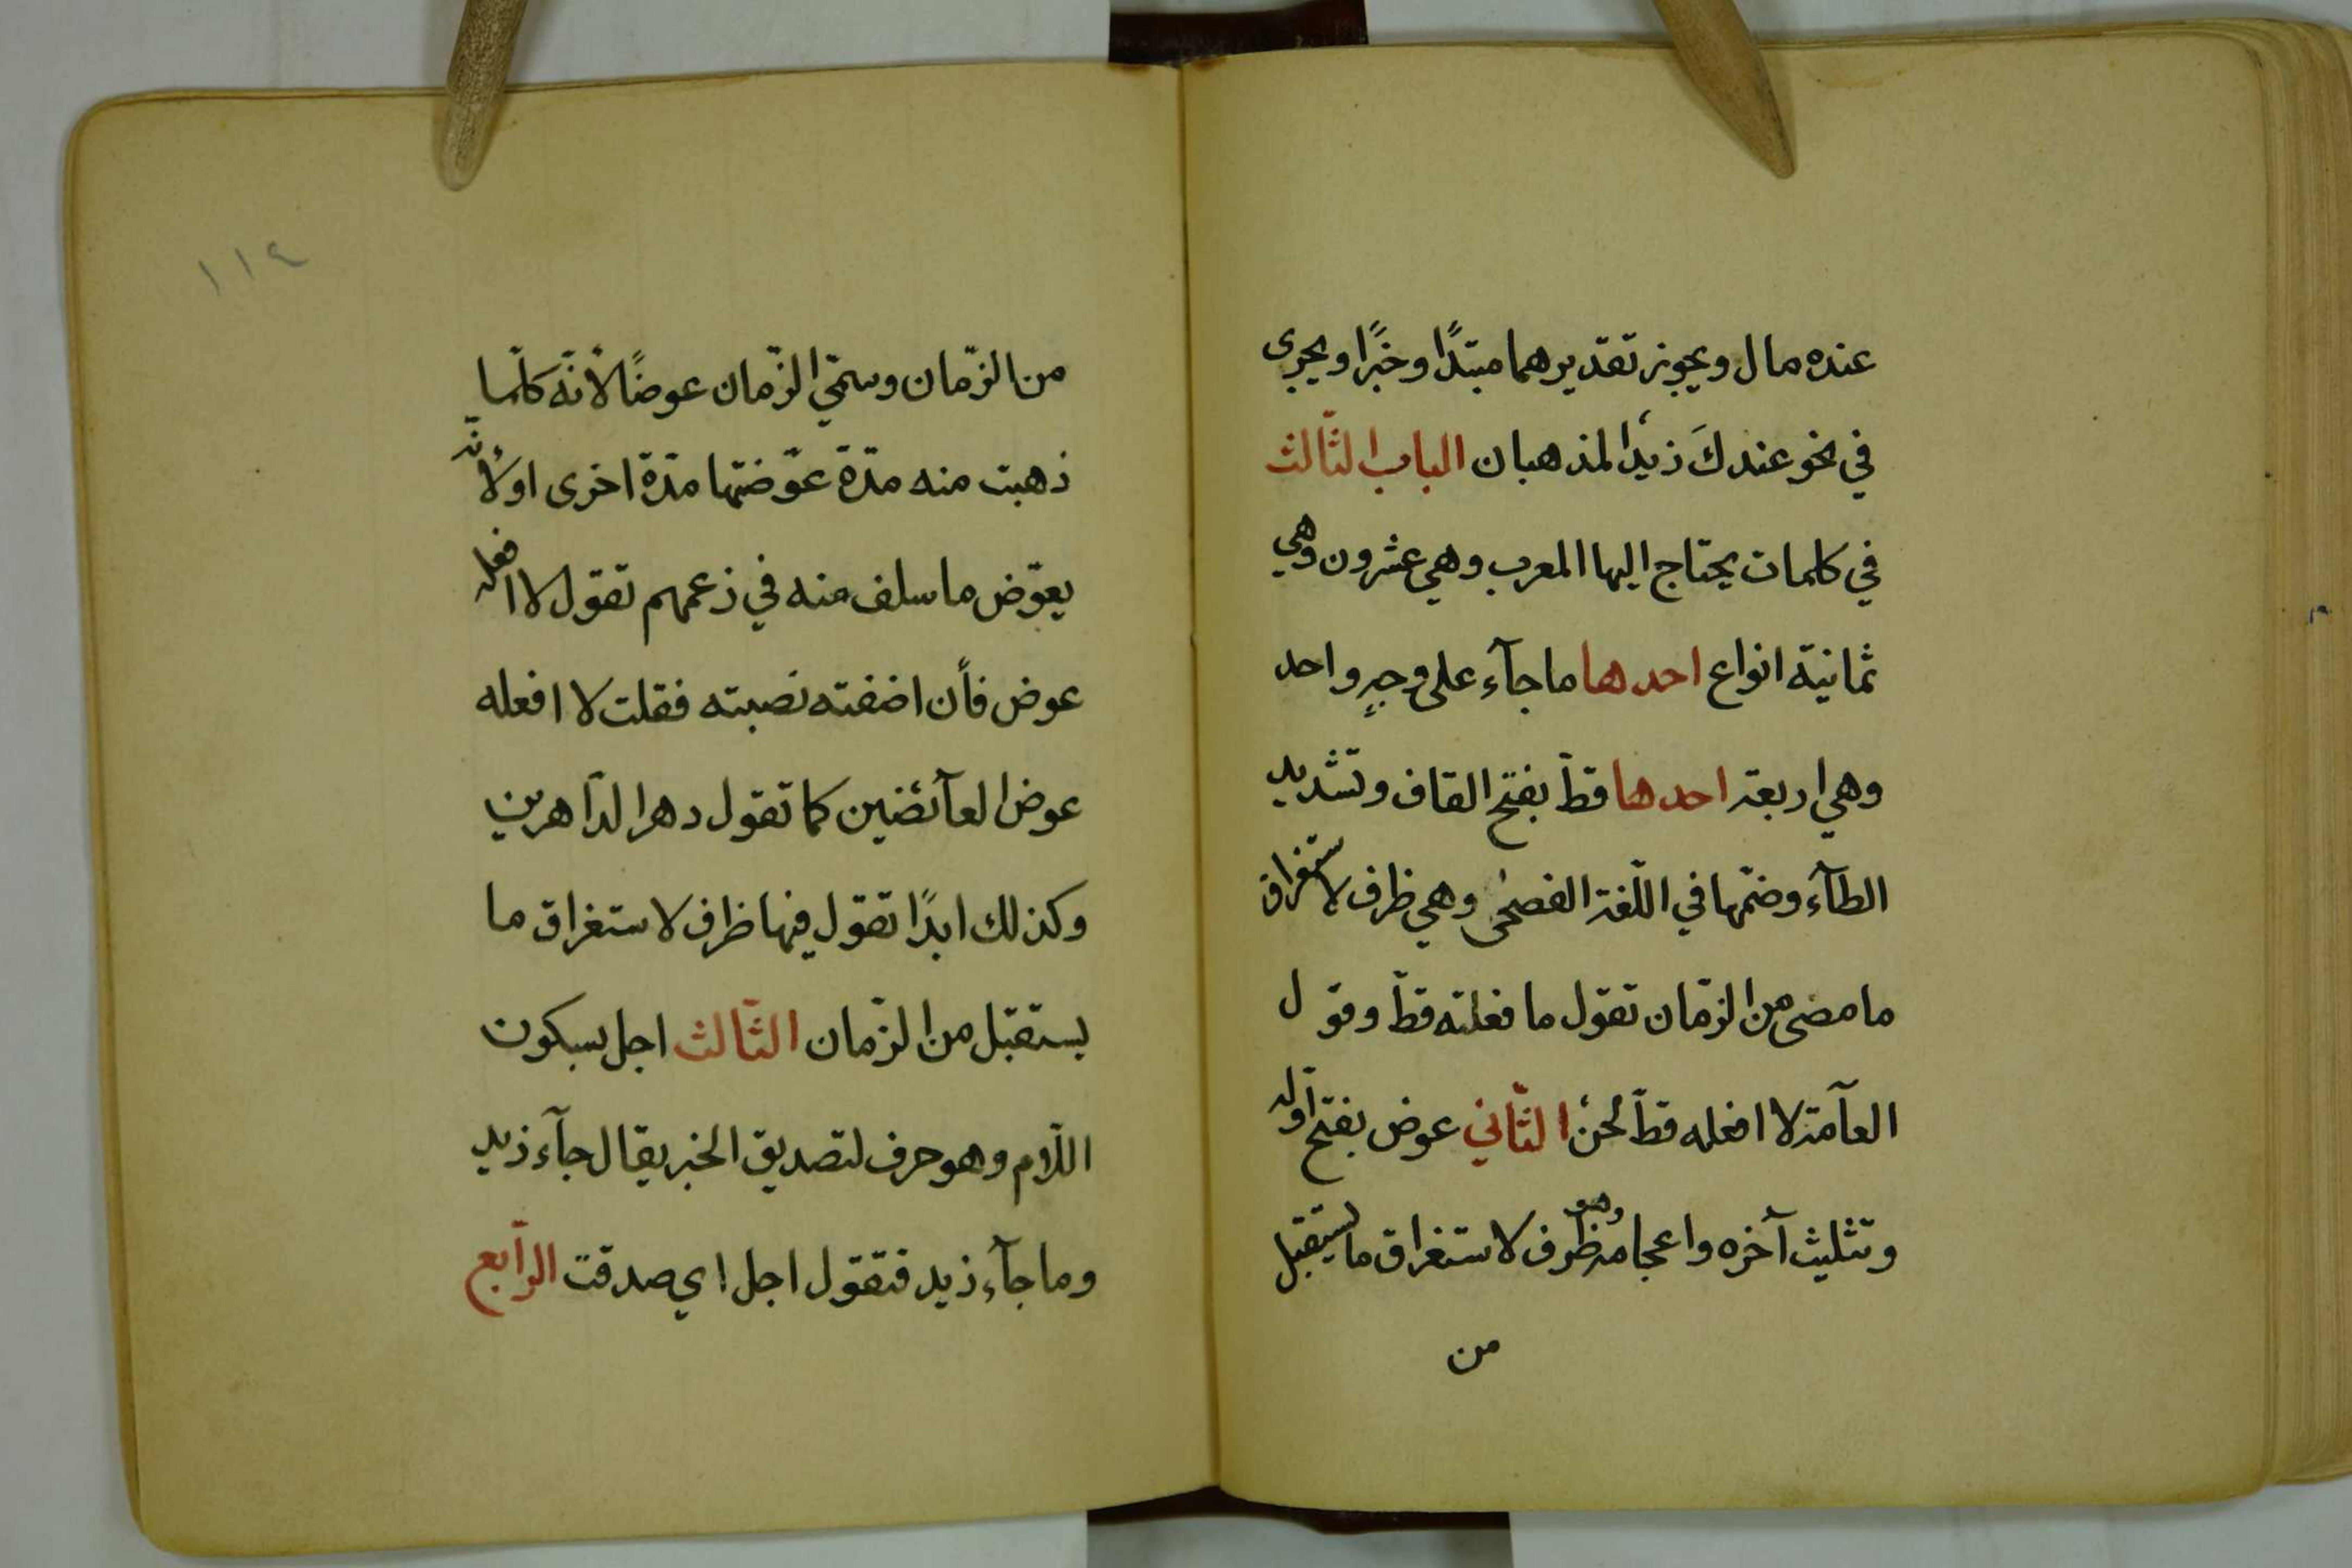 عنده مال ويجوز تقديرهما مبتدًا وخبًرا ويجرى
في نحو عندكَ زيدٌ المذهبان الباب الثّالث
في كلمات يحتاج اليها المعرب وهي عشرون وهي
ثمانية انواع احدها ما جآء على وجهٍ واحد
وهي اربعة احدها قطّ بفتح القاف وتشديد
الطآء وضمّها في اللّغة الفصحى وهي ظرف لاستغراق
ما مضى من الزّمان تقول ما فعلته قطّ وقول
العآمة لا افعله قطّ لحنٌ الثّاني عوض بفتح اوّله
وتثليث آخره واعجامه وهو ظرف لاستغراق ما يستقبل
من
١١٤
من الزّمان وسمّي الزّمان عوضًا لأنّه كلّما
ذهبت منه مدّة عوّضتها مدّة اخرى او لأنّه
يعوّض ما سلف منه في زعمهم تقول لا افعله
عوض فأن اضفته نصبته فقلت لا افعله
عوض العآئضين كما تقول دهر الدّاهرين
وكذلك ابدًا تقول فيها ظرف لاستغراق ما
يستقبل من الزّمان الثّالث اجل بسكون
اللّام وهو حرف لتصديق الخبر يقال جآء زيد
وما جآء زيد فتقول اجل اي صدقت الرّابع